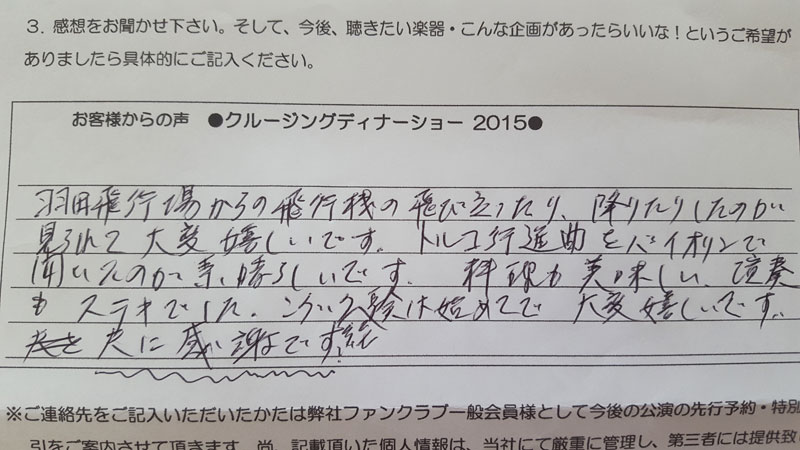 3. 感想をお聞かせ下さい。そして、今後、聴きたい楽器・こんな企画があったらいいな！というご希望が
ありましたら具体的にご記入ください。
お客様からの声 ●クルージングディナーショー 2015●
羽田飛行場からの飛行機の飛び立ったり、降りたりしたのが
見られて大変嬉しいです。トルコ行進曲をバイオリンで
聞いたのが素晴らしいです。料理も美味しい、演奏
も ステキでした。こういう験は始めてで 大変嬉しいです。
夫に感謝です
※ご連絡先をご記入いただいたかたは弊社ファンクラブ一般会員様として今後の公演の先行予約・特別
引をご案内させて頂きます。尚、記載頂いた個人情報は、当社にて厳重に管理し、第三者には提供致